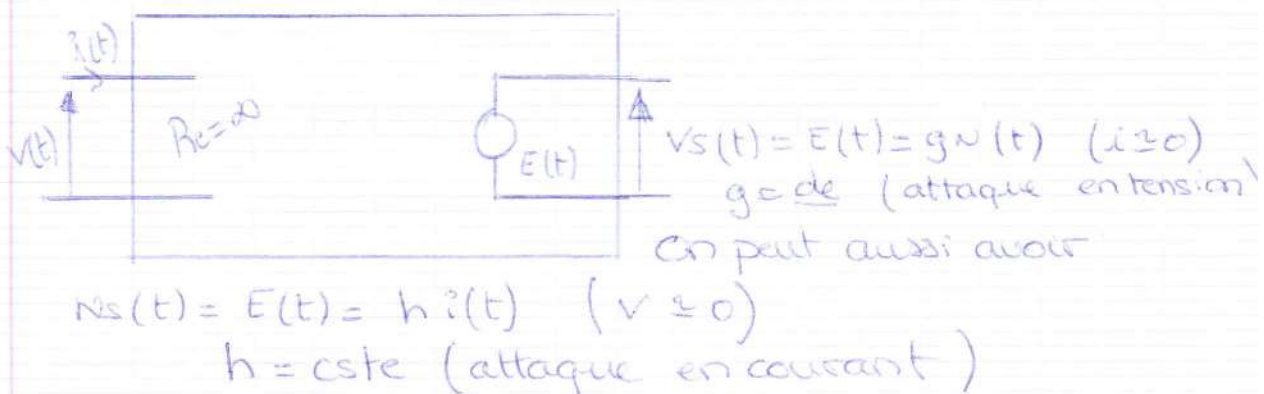 i(t)
V(t)
Re=∞
E(t)
Vs(t) = E(t) = g v(t) (i ≃ 0)
g = cte (attaque en tension)
on peut aussi avoir
Vs(t) = E(t) = h i(t) (v ≃ 0)
h = cste (attaque en courant)